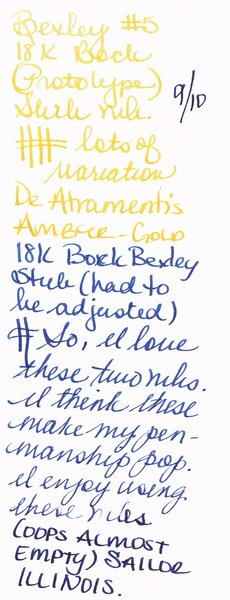 Bexley #5
18K Bock
(Prototype)
Stub nib.
9/10
lots of
variation
De Atramentis
Amber-Gold
18K Bock Bexley
Stub (had to
be adjusted)
So, I love
these two nibs.
I think these
make my pen-
manship pop.
I enjoy using
these nibs
(OOPS ALMOST
EMPTY) SAILOR
ILLINOIS.